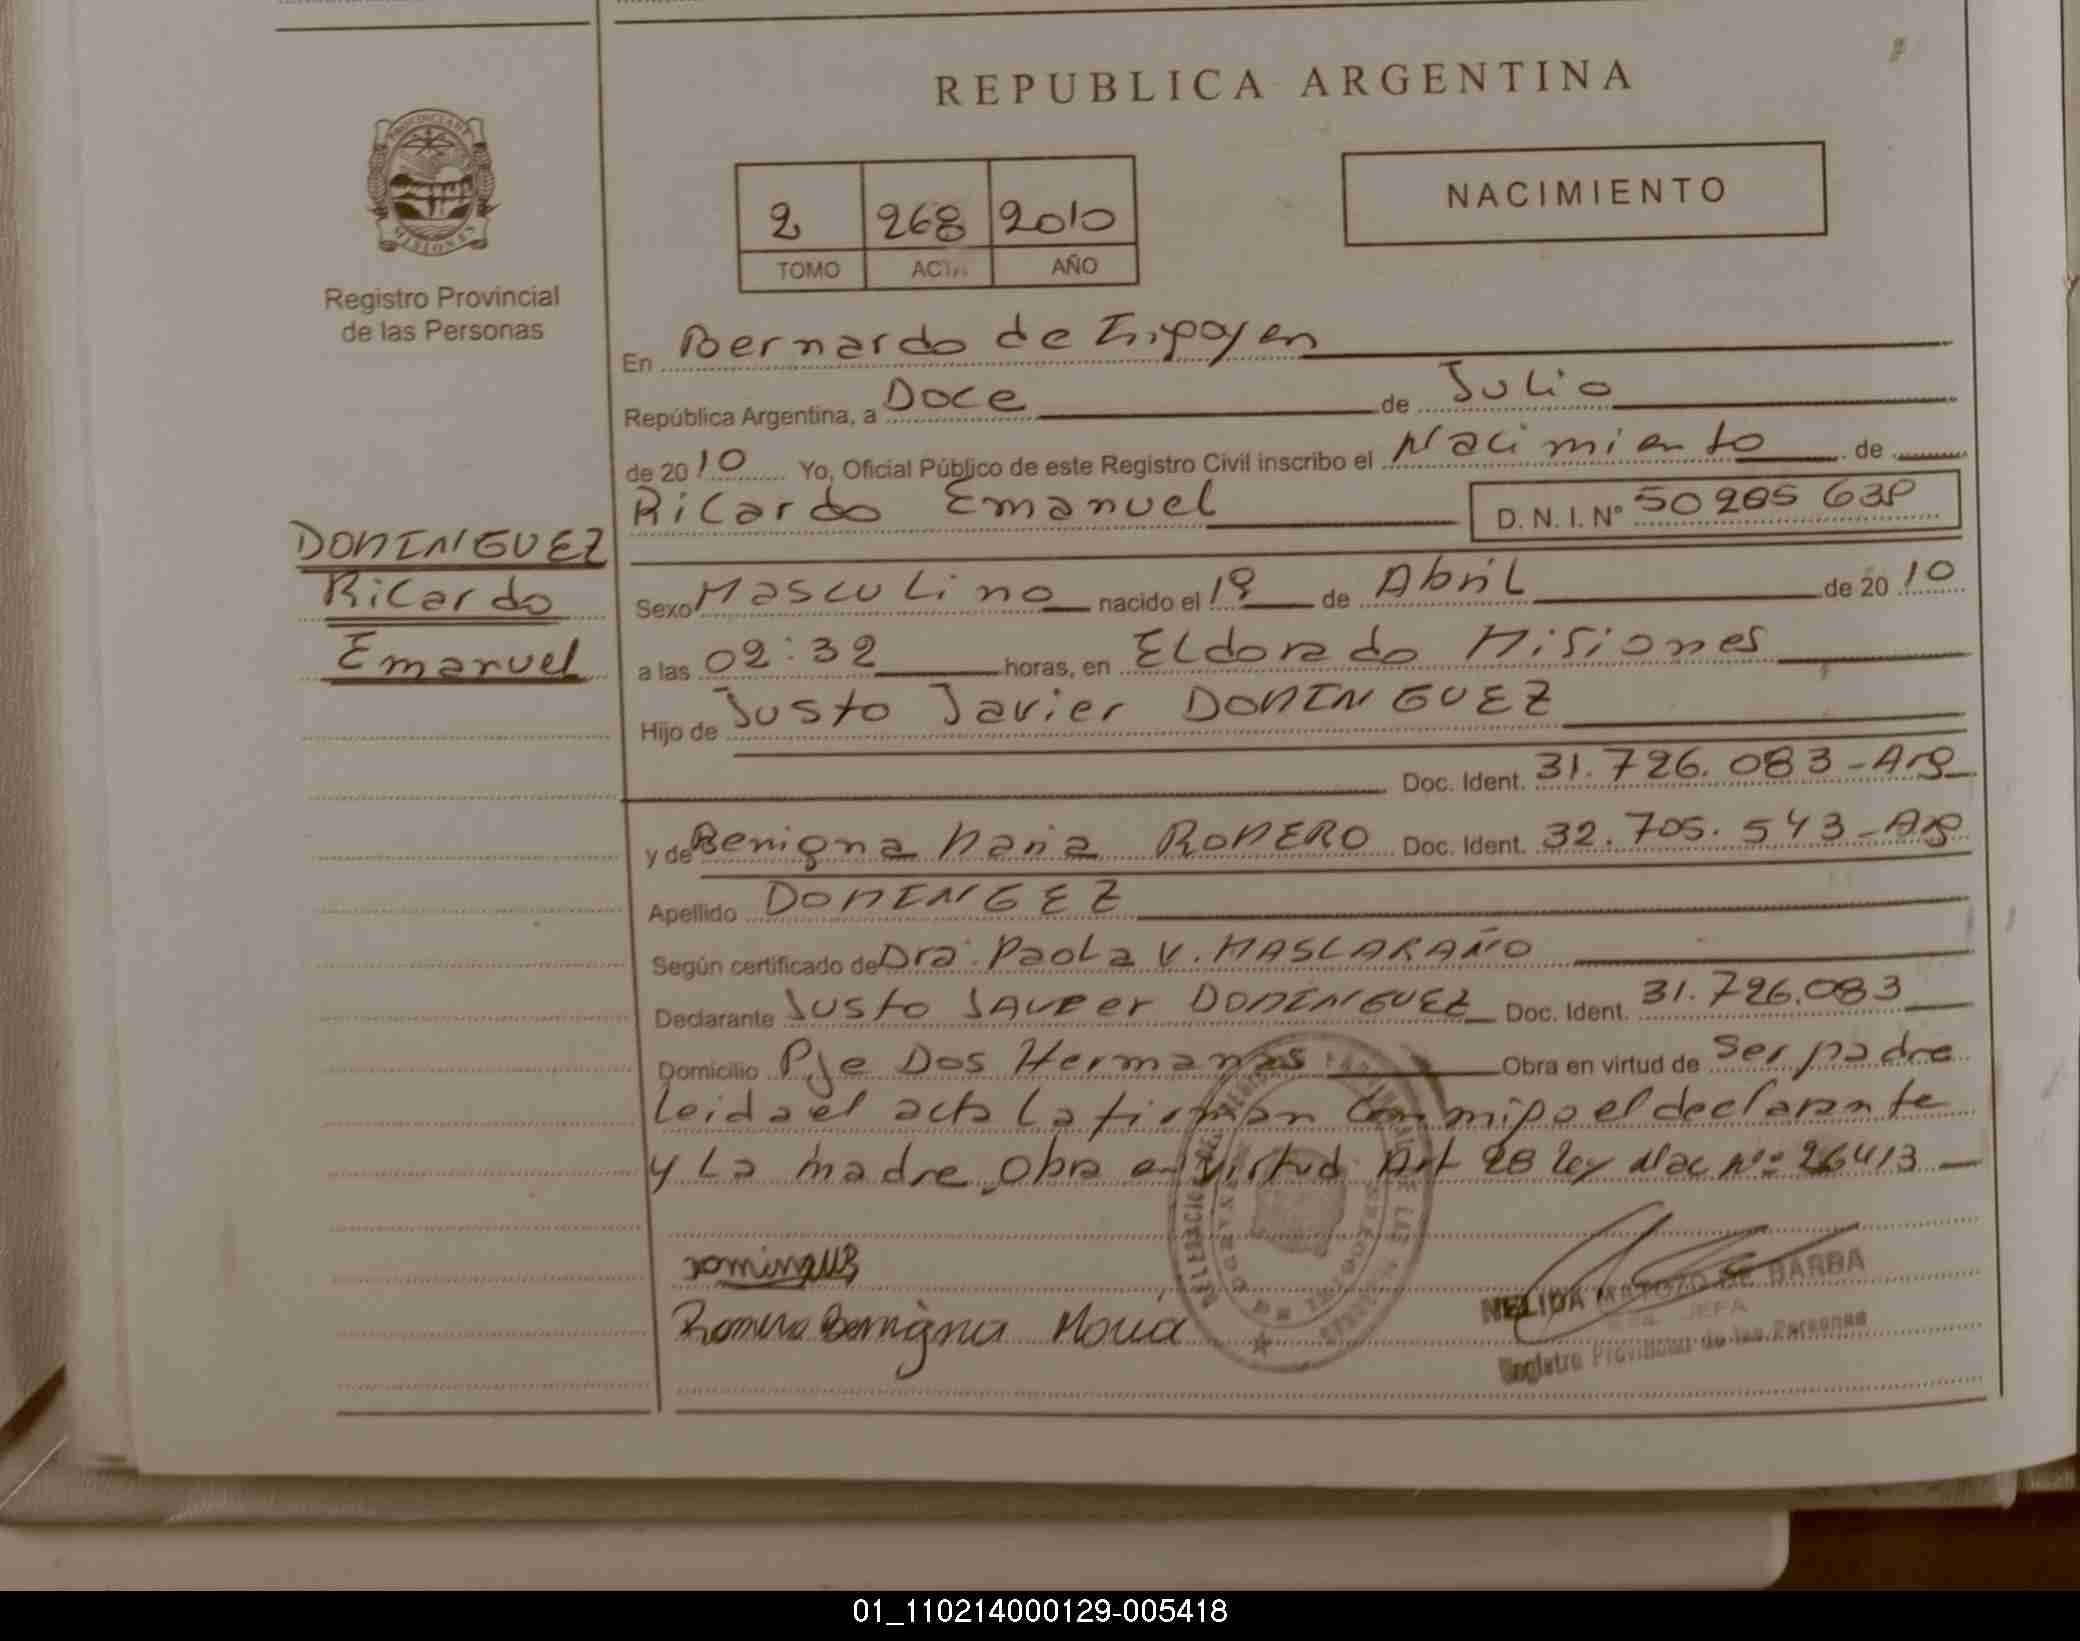 REPUBLICA ARGENTINA
PROVINCIA DE
MISIONES
Registro Provincial
de las Personas
2 268 2010
TOMO ACTA AÑO
NACIMIENTO
En Bernardo de Irigoyen
República Argentina, a Doce de Julio
de 2010 Yo, Oficial Público de este Registro Civil inscribo el Nacimiento de
Ricardo Emanuel D. N. I. Nº 50 285
DOMINGUEZ
Ricardo
Emanuel
Sexo Masculino nacido el de Abril de 2010
a las 02:32 horas, en Eldorado Misiones
Hijo de Justo Javier DOMINGUEZ
Doc. Ident. 31.726.083-Arg
y de Benigna Maria ROMERO Doc. Ident. 32.705.543-Arg
Apellido DOMINGEZ
Según certificado de Dra. Paola V. MASCARAÑO
Declarante Justo JAVIER DOMINGUEZ Doc. Ident. 31.726.083
Domicilio Pje Dos Hermanas Obra en virtud de Ser padre
Leida el acta La firman Conmigo el declarante
y La madre, obra en virtud Art 28 ley Nac nº 26413
Romero Benigna Maria
NELIDA MATOZO DE BARBA
JEFA
Registro Provincial de las Personas
01_110214000129-005418